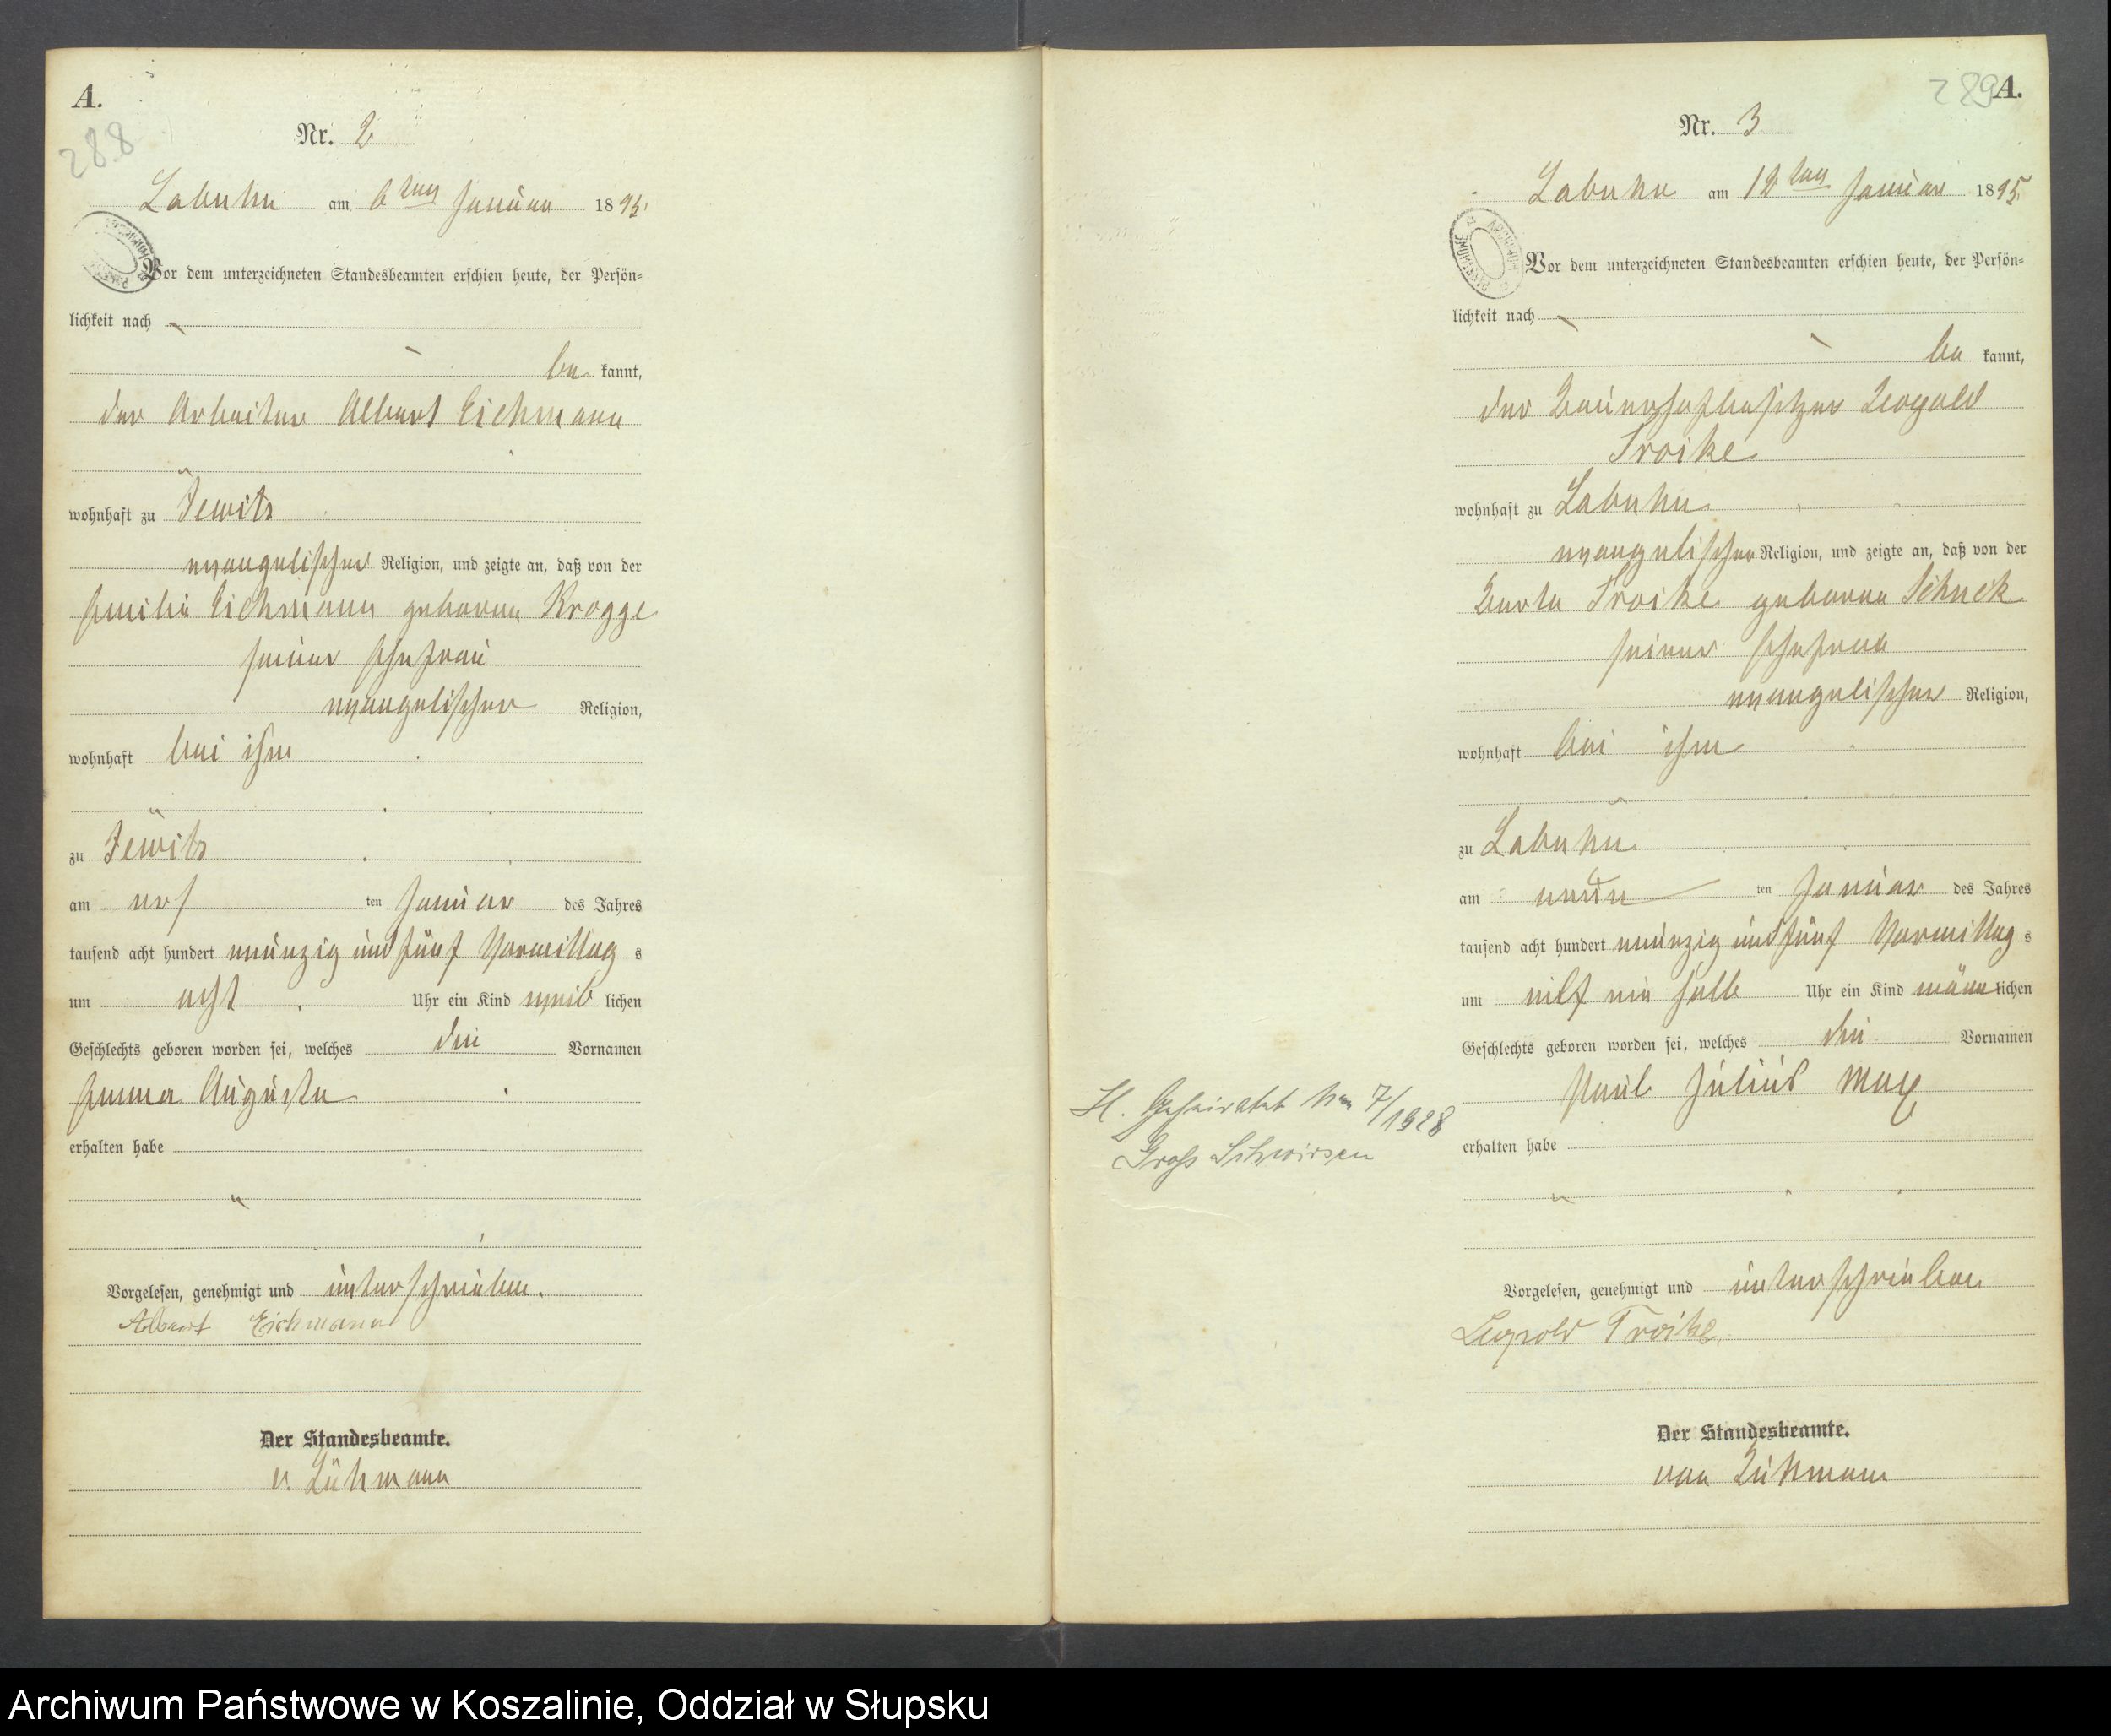 A.
288
Nr. 2
Labuhn am 6ten Januar 1895.
Vor dem unterzeichneten Standesbeamten erschien heute, der Persön=
lichkeit nach
be kannt,
der Arbeiter Albert Eichmann
wohnhaft zu Jewitz
evangelischer Religion, und zeigte an, daß von der
Emilie Eichmann geborene Krogge
seiner Ehefrau
evangelischer Religion,
wohnhaft bei ihm
zu Jewitz
am ten Januar des Jahres
tausend acht hundert neunzig und fünf Vormittag s
um acht Uhr ein Kind weib lichen
Geschlechts geboren worden sei, welches die Vornamen
Emma Auguste
erhalten habe
Vorgelesen, genehmigt und unterschrieben.
Albert Eichmann
Der Standesbeamte.
v. Lühmann
289 A.
Nr. 3
Labuhn am 12ten Januar 1895.
Vor dem unterzeichneten Standesbeamten erschien heute, der Persön=
lichkeit nach
be kannt,
der Bauerhofbesitzer Leopold
Troike
wohnhaft zu Labuhn
evangelischer Religion, und zeigte an, daß von der
Berta Troike geborene Schuck
seiner Ehefrau
evangelischer Religion,
wohnhaft bei ihm
zu Labuhn
am neun ten Januar des Jahres
tausend acht hundert neunzig und fünf Vormittag s
um elf ein halb Uhr ein Kind männ lichen
Geschlechts geboren worden sei, welches die Vornamen
Paul Julius Max
erhalten habe
H. Geheiratet 7/1928
Groß Schwirsen
Vorgelesen, genehmigt und unterschrieben
Leopold Troike.
Der Standesbeamte.
von Lühmann
Archiwum Państwowe w Koszalinie, Oddział w Słupsku